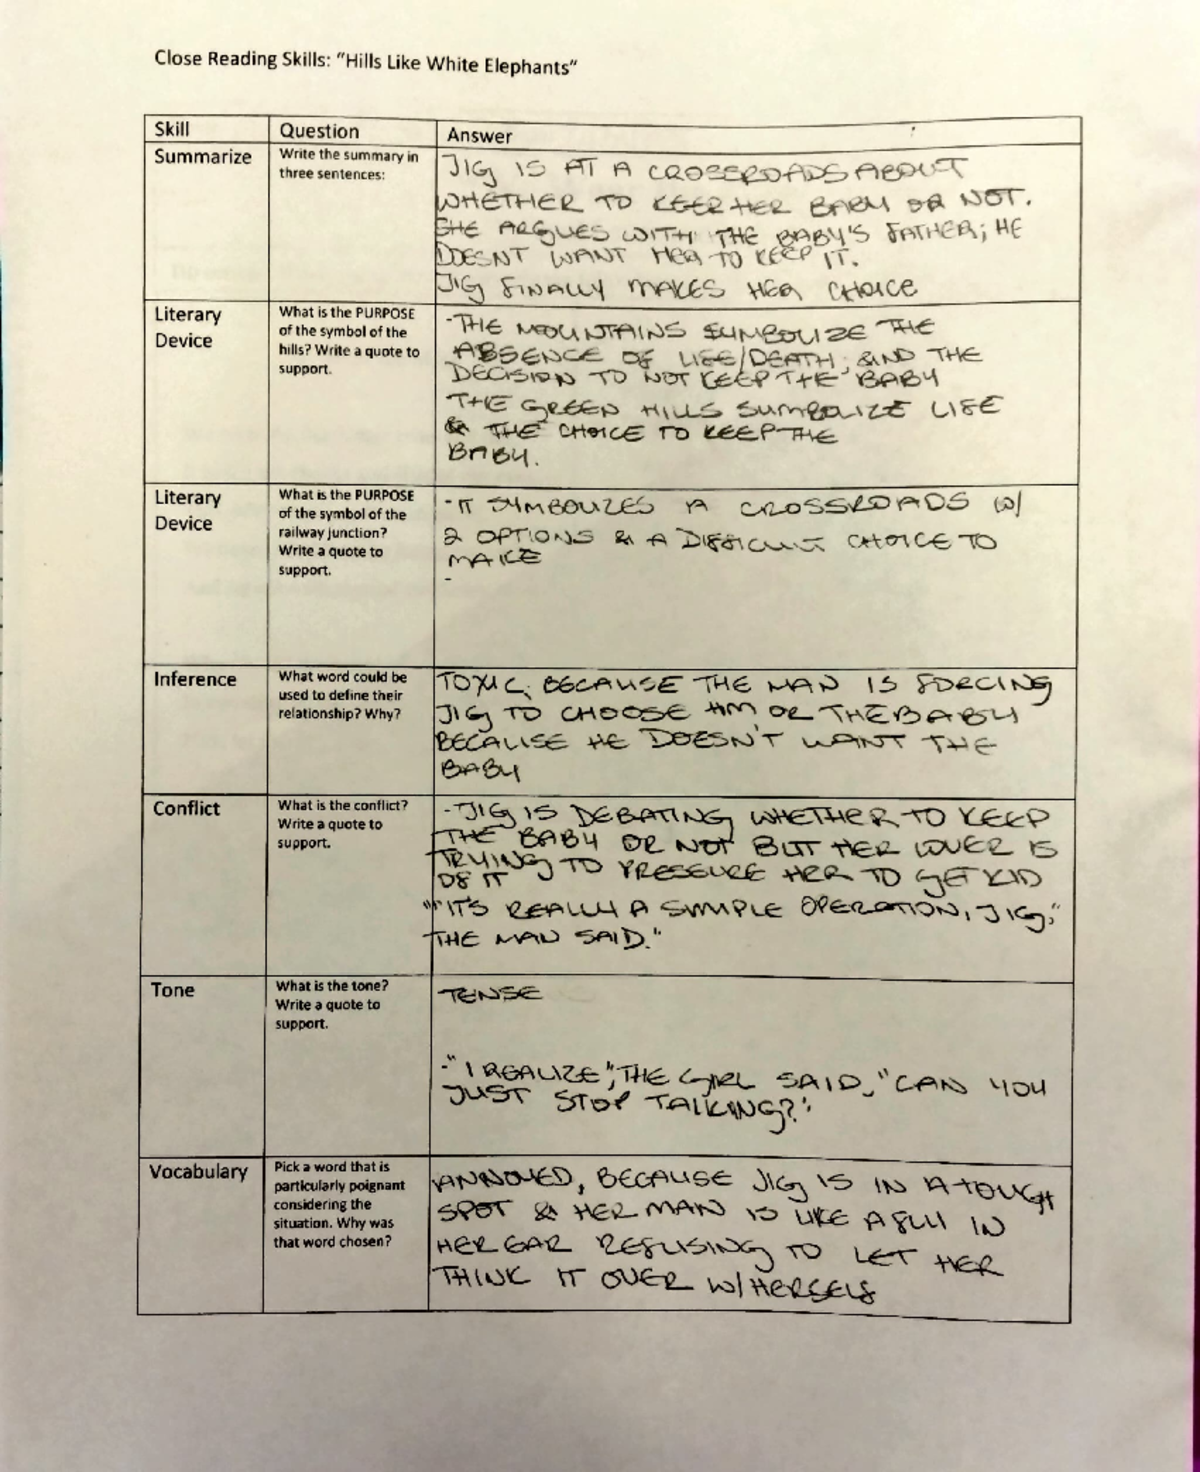 Close Reading Skills: "Hills Like White Elephants"
Skill
Question
Answer
Summarize
Write the summary in
three sentences:
JIG IS AT A CROSSROADS ABOUT
WHETHER TO KEEP HER BABY OR NOT.
SHE ARGUES WITH THE BABY'S FATHER; HE
DOESNT WANT HER TO KEEP IT.
JIG FINALLY MAKES HER CHOICE
Literary
Device
What is the PURPOSE
of the symbol of the
hills? Write a quote to
support.
-THE MOUNTAINS SYMBOLIZE THE
ABSENCE OF LIFE/DEATH, AND THE
DECISION TO NOT KEEP THE BABY
THE GREEN HILLS SYMBOLIZE LIFE
& THE CHOICE TO KEEP THE
BABY.
Literary
Device
What is the PURPOSE
of the symbol of the
railway junction?
Write a quote to
support.
-IT SYMBOLIZES A CROSSROADS W/
2 OPTIONS & A DIFFICULT CHOICE TO
MAKE
-
Inference
What word could be
used to define their
relationship? Why?
TOXIC, BECAUSE THE MAN IS FORCING
JIG TO CHOOSE HIM OR THE BABY
BECAUSE HE DOESN'T WANT THE
BABY
Conflict
What is the conflict?
Write a quote to
support.
-JIG IS DEBATING WHETHER TO KEEP
THE BABY OR NOT BUT HER LOVER IS
TRYING TO PRESSURE HER TO GET RID
OF IT
"'IT'S REALLY A SIMPLE OPERATION, JIG,'
THE MAN SAID."
Tone
What is the tone?
Write a quote to
support.
TENSE
-"I REALIZE", THE GIRL SAID, "CAN YOU
JUST STOP TALKING?'
Vocabulary
Pick a word that is
particularly poignant
considering the
situation. Why was
that word chosen?
ANNOYED, BECAUSE JIG IS IN A TOUGH
SPOT & HER MAN IS LIKE A FLY IN
HER EAR REFUSING TO LET HER
THINK IT OVER W/HERSELF